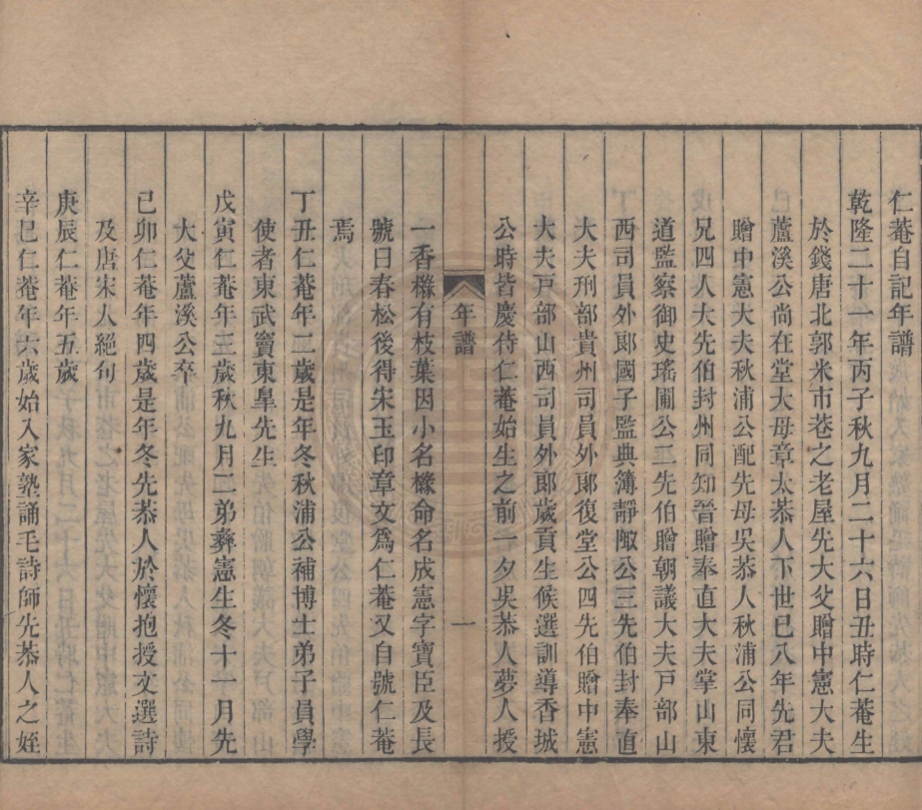 仁菴自記年譜
乾隆二十一年丙子秋九月二十六日丑時仁菴生
於錢唐北郭米市巷之老屋先大父贈中憲大夫
蘆溪公尚在堂大母章太恭人下世已八年先君
贈中憲大夫秋浦公配先母吳恭人秋浦公同懷
兄四人大先伯封州同知晉贈奉直大夫掌山東
道監察御史瑤圃公二先伯贈朝議大夫戸部山
西司員外郎國子監典簿靜陬公三先伯封奉直
大夫刑部貴州司員外郎復堂公四先伯贈中憲
大夫戸部山西司員外郎歲貢生候選訓導香城
公時皆慶侍仁菴始生之前一夕吳恭人夢人授
年譜 一
一香櫞有枝葉因小名櫞命名成憲字寶臣及長
號曰春松後得宋玉印章文爲仁菴又自號仁菴
焉
丁丑仁菴年二歲是年冬秋浦公補博士弟子員學
使者東武竇東臯先生
戊寅仁菴年三歲秋九月二弟彝憲生冬十一月先
大父蘆溪公卒
己卯仁菴年四歲是年冬先恭人於懷抱授文選詩
及唐宋人絕句
庚辰仁菴年五歲
辛巳仁菴年六歲始入家塾誦毛詩師先恭人之姪